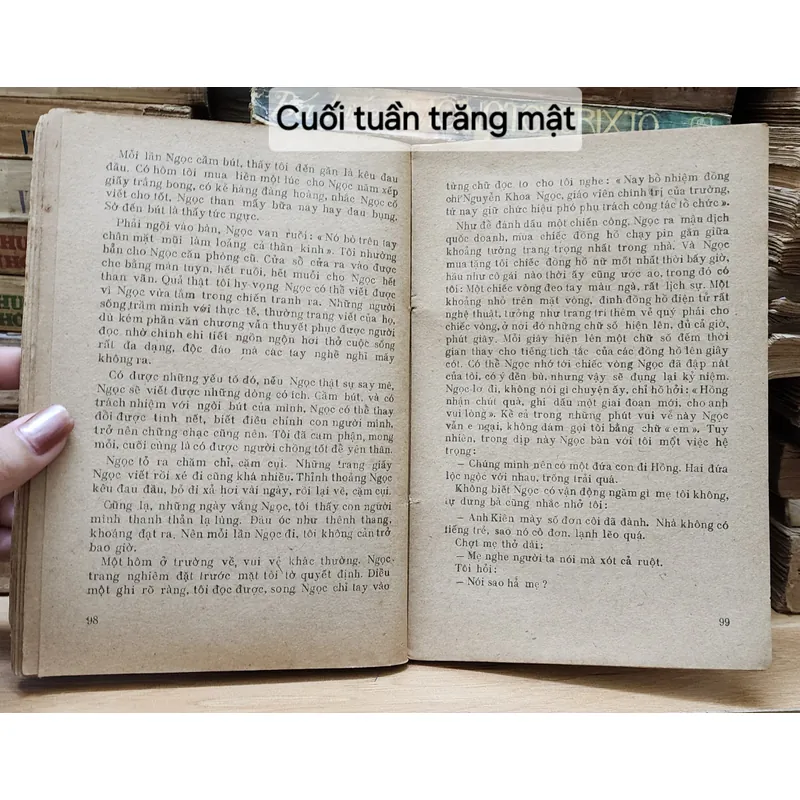 Cuối tuần trăng mật
Mỗi lần Ngọc cầm bút, thấy tôi đến gần là kêu đau
đầu. Có hôm tôi mua liền một lúc cho Ngọc năm xếp
giấy trắng bong, có kẻ hàng đàng hoàng, nhắc Ngọc cố
viết cho tốt, Ngọc than mấy bữa nay hay đau bụng.
Sờ đến bút là thấy tức ngực.
Phải ngồi vào bàn, Ngọc vạn ruồi: « Nó bò trên tay
chân mặt mũi làm loảng cả thần kinh ». Tôi nhường
hẳn cho Ngọc căn phòng cũ. Cửa sổ cửa ra vào được
che bằng màn tuyn, hết ruồi, hết muỗi cho Ngọc hết
than vãn. Quả thật tôi hy vọng Ngọc có thể viết được
vì Ngọc vừa tắm trong chiến tranh ra. Những người
sống trầm mình với thực tế, thường trang viết của họ,
dù kém phần văn chương vẫn thuyết phục được người
đọc nhờ chính chi tiết ngồn ngộn hơi thở cuộc sống
rất đa dạng, độc đáo mà các tay nghề nghĩ mấy
không ra.
Có được những yếu tố đó, nếu Ngọc thật sự say mê,
Ngọc sẽ viết được những dòng có ích. Cầm bút, và có
trách nhiệm với ngòi bút của mình, Ngọc có thể thay
đổi được tính nết, biết điều chỉnh con người mình,
trở nên chững chạc cũng nên. Tôi đã cam phận, mong
mỏi, cuối cùng là có được người chồng tốt để yên thân.
Ngọc tỏ ra chăm chỉ, cặm cụi. Những trang giấy
Ngọc viết rồi xé đi cũng khá nhiều. Thỉnh thoảng Ngọc
kêu đau đầu, bỏ đi xả hơi vài ngày, rồi lại về, cặm cụi.
Cũng lạ, những ngày vắng Ngọc, tôi thấy con người
mình thanh thản lạ lùng. Đầu óc như thênh thang,
khoáng đạt ra. Nên mỗi lần Ngọc đi, tôi không cản trở
bao giờ.
Một hôm ở trường về, vui vẻ khác thường. Ngọc
trang nghiêm đặt trước mặt tôi tờ quyết định. Điều
một ghi rõ ràng, tôi đọc được, song Ngọc chỉ tay vào
98
từng chữ đọc to cho tôi nghe: « Nay bổ nhiệm đồng
chí Nguyễn Khoa Ngọc, giáo viên chính trị của trường,
từ nay giữ chức hiệu phó phụ trách công tác tổ chức ».
Như để đánh dấu một chiến công, Ngọc ra mậu dịch
quốc doanh, mua chiếc đồng hồ chạy pin gắn giữa
khoảng tường trang trọng nhất trong nhà. Và Ngọc
mua tặng tôi chiếc đồng hồ nữ mốt nhất thời bấy giờ,
hầu như cô gái nào thời ấy cũng ước ao, trong đó có
tôi: Một chiếc vòng đeo tay màu ngà, rất lịch sự. Một
khoảng nhỏ trên mặt vòng, đính đồng hồ điện tử rất
nghệ thuật, tưởng như trang trí thêm vẻ quý phái cho
chiếc vòng, ở nới đó những chữ số hiện lên, đủ cả giờ,
phút giây. Mỗi giây hiện lên một chữ số đếm thời
gian thay cho tiếng tích tắc của các đồng hồ lên giây
cót. Có thể Ngọc nhớ tới chiếc vòng Ngọc đã đập nát
của tôi, có ý đền bù, nhưng vậy sẽ đụng lại kỷ niệm.
Ngọc lơ đi, không nói gì chuyện ấy, chỉ hồ hởi: « Hồng
nhận chút quà, ghi dấu một giai đoạn mới, cho anh
vui lòng ». Kể cả trong những phút vui vẻ này Ngọc
vẫn e ngại, không dám gọi tôi bằng chữ « em ». Tuy
nhiên, trong dịp này Ngọc bàn với tôi một việc hệ
trọng:
— Chúng mình nên có một đứa con đi Hồng. Hai đứa
lọc ngọc với nhau, trống trải quá.
Không biết Ngọc có vận động ngầm gì mẹ tôi không,
tự dưng bà cũng nhắc nhở tôi:
— Anh Kiên mày số đơn côi đã đành. Nhà không có
tiếng trẻ, sao nó cô đơn, lạnh lẽo quá.
Chợt mẹ thở dài:
— Mẹ nghe người ta nói mà xót cả ruột.
Tôi hỏi:
— Nói sao hả mẹ ?
99